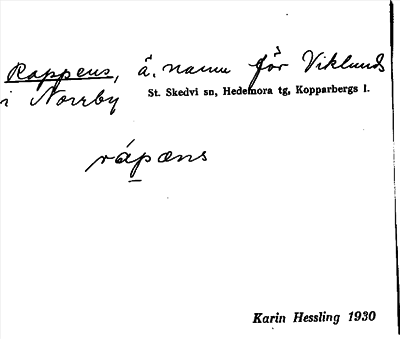 Rappens, ä. namn för Viklunds
i Norrby
St. Skedvi sn, Hedemora tg, Kopparbergs l.
rápæns
Karin Hessling 1930